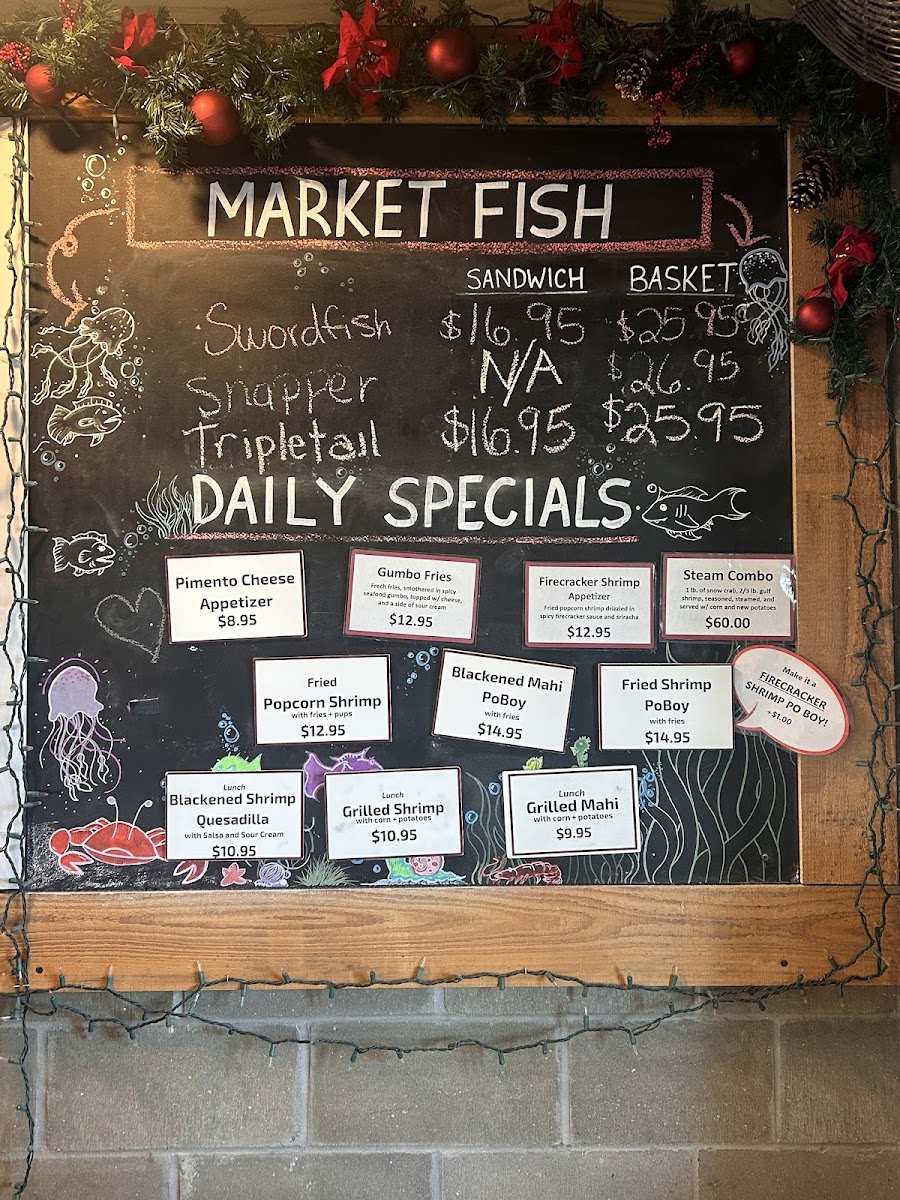 MARKET FISH
SANDWICH BASKET
Swordfish $16.95 $25.95
Snapper N/A $26.95
Tripletail $16.95 $25.95
DAILY SPECIALS
Pimento Cheese
Appetizer
$8.95
Gumbo Fries
Frech fries, smothered in spicy
seafood gumbo, topped w/ cheese,
and a side of sour cream
$12.95
Firecracker Shrimp
Appetizer
Fried popcorn shrimp drizzled in
spicy firecracker sauce and sriracha
$12.95
Steam Combo
1 lb. of snow crab, 2/3 lb. gulf
shrimp, seasoned, steamed, and
served w/ corn and new potatoes
$60.00
Fried
Popcorn Shrimp
with fries + pups
$12.95
Blackened Mahi
PoBoy
with fries
$14.95
Fried Shrimp
PoBoy
with fries
$14.95
Make it a
FIRECRACKER
SHRIMP PO BOY!
+$1.00
Lunch
Blackened Shrimp
Quesadilla
with Salsa and Sour Cream
$10.95
Lunch
Grilled Shrimp
with corn + potatoes
$10.95
Lunch
Grilled Mahi
with corn + potatoes
$9.95